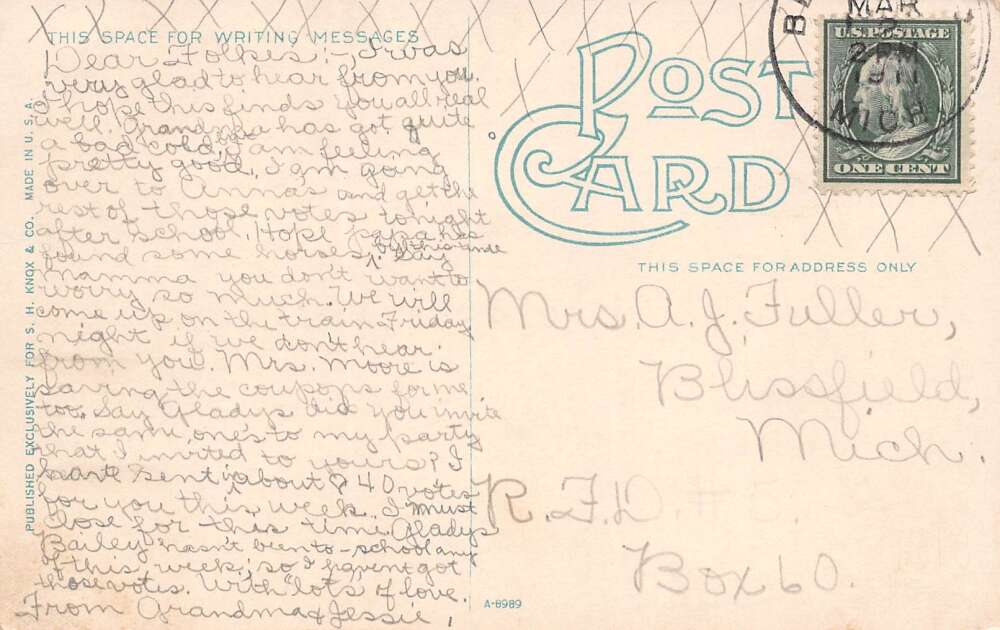 THIS SPACE FOR WRITING MESSAGES
Dear Folkes:- I was
very glad to hear from you.
I hope this finds you all real
well. Grandma has got quite
a bad cold. I am feeling
pretty good. I am going
over to Anna's and get the
rest of those votes tonight
after school. Hope papa has
found some horses by this time. Say
Mamma you don't want to
worry so much. We will
come up on the train Friday
night if we don't hear
from you. Mrs. Moore is
saving the coupons for me
too. Say Gladys did you invite
the same ones to my party
that I invited to yours? I
have sent in about 40 votes
for you this week. I must
close for this time. Gladys
Bailey hasn't been to-school any
of this week, so I havent got
those votes. With "lots" of love.
From Grandma & Jessie,
PUBLISHED EXCLUSIVELY FOR S. H. KNOX & CO. MADE IN U. S. A.
POST
CARD
MAR
2
2 PM
1911
MICH
U.S. POSTAGE
ONE CENT
THIS SPACE FOR ADDRESS ONLY
Mrs. A. J. Fuller,
Blissfield,
Mich.
R. F. D. #
Box 60.
A-8989